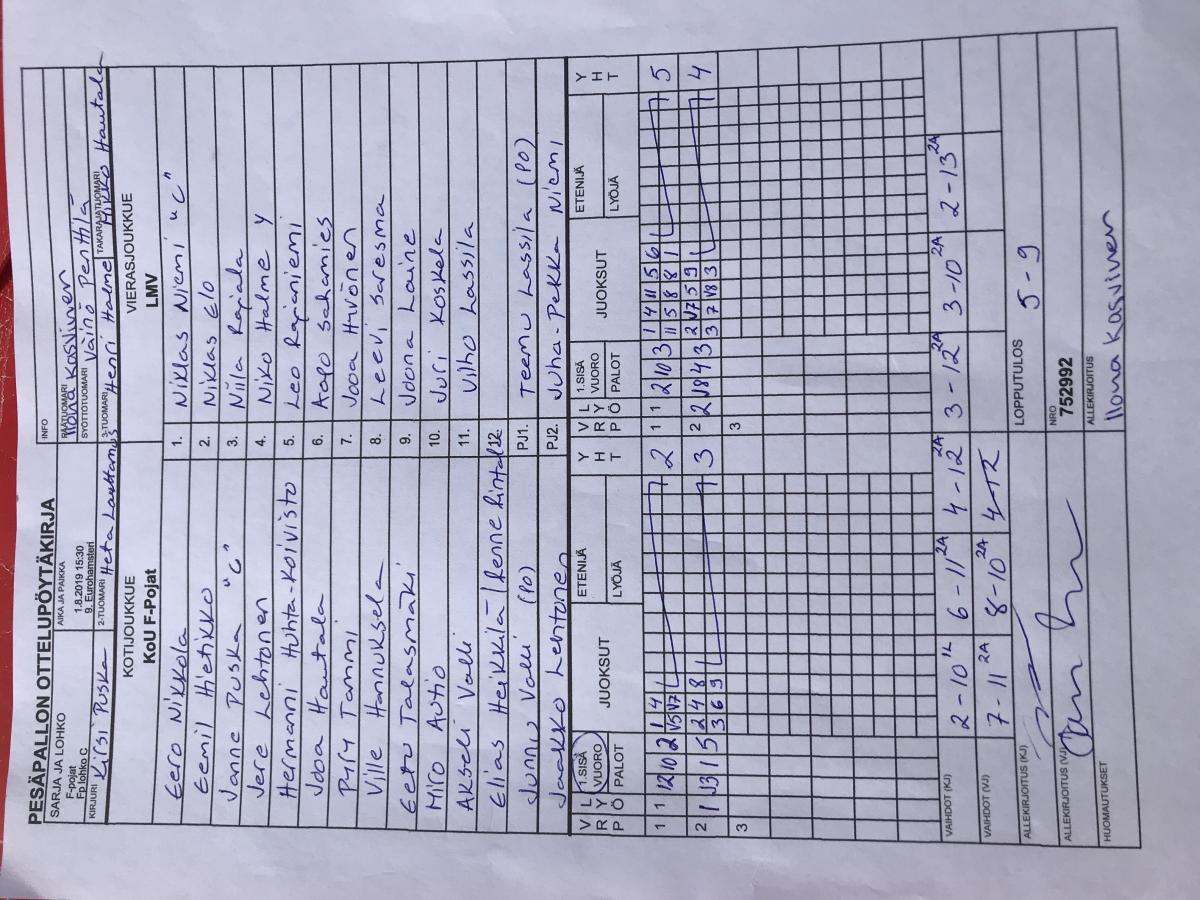 PESÄPALLON OTTELUPÖYTÄKIRJA
SARJA JA LOHKO
F-pojat
Fp lohko C
AIKA JA PAIKKA
1.8.2019 15:30
9. Eurohamsteri
INFO
PÄÄTUOMARI Ilona Kasvinen
SYÖTTÖTUOMARI Väinö Penttilä
KIRJURI Kirsi Puska
2-TUOMARI Heta Lauttamus
3-TUOMARI Henri Halme
TAKARAJATUOMARI Mikko Hautala
KOTIJOUKKUE
KoU F-Pojat
VIERASJOUKKUE
LMV
Eero Nikkola 1. Niklas Niemi "C"
Eemil Hietikko 2. Niklas Elo
Janne Puska "C" 3. Niila Rajala
Jere Lehtonen 4. Niko Halme Y
Hermanni Huhta-Koivisto 5. Leo Rajaniemi
Jooa Hautala 6. Aapo Sahamies
Pyry Tammi 7. Jooa Huvonen
Ville Hannuksela 8. Leevi Saresma
Eetu Talasmäki 9. Joona Laine
Miro Autio 10. Juri Koskela
Akseli Valli 11. Vilho Lassila
Elias Heikkilä / Renne Rintala 12. 12
Junnu Valli (PO) PJ1. Teemu Lassila (PO)
Jaakko Lehtonen PJ2. Juha-Pekka Niemi
V R P L Y Ö 1.SISÄ VUORO PALOT JUOKSUT ETENIJÄ LYÖJÄ Y H T V R P L Y Ö 1.SISÄ VUORO PALOT JUOKSUT ETENIJÄ LYÖJÄ Y H T
1 1 12 10 2 1 4 V5 V7 2 1 1 2 10 3 1 4 11 5 6 11 5 8 8 1 5
2 1 13 1 5 2 4 8 3 6 9 3 2 2 V8 4 3 2 V7 5 9 3 7 V8 3 1 4
3 3
VAIHDOT (KJ) 2-10 1L 6-11 2A 4-12 2A 3-12 2A 3-10 2A 2-13 2A
VAIHDOT (VJ) 7-11 2A 8-10 2A 4-12
ALLEKIRJOITUS (KJ)
LOPPUTULOS 5-9
ALLEKIRJOITUS (VJ)
NRO
752992
HUOMAUTUKSET
ALLEKIRJOITUS
Ilona Kasvinen